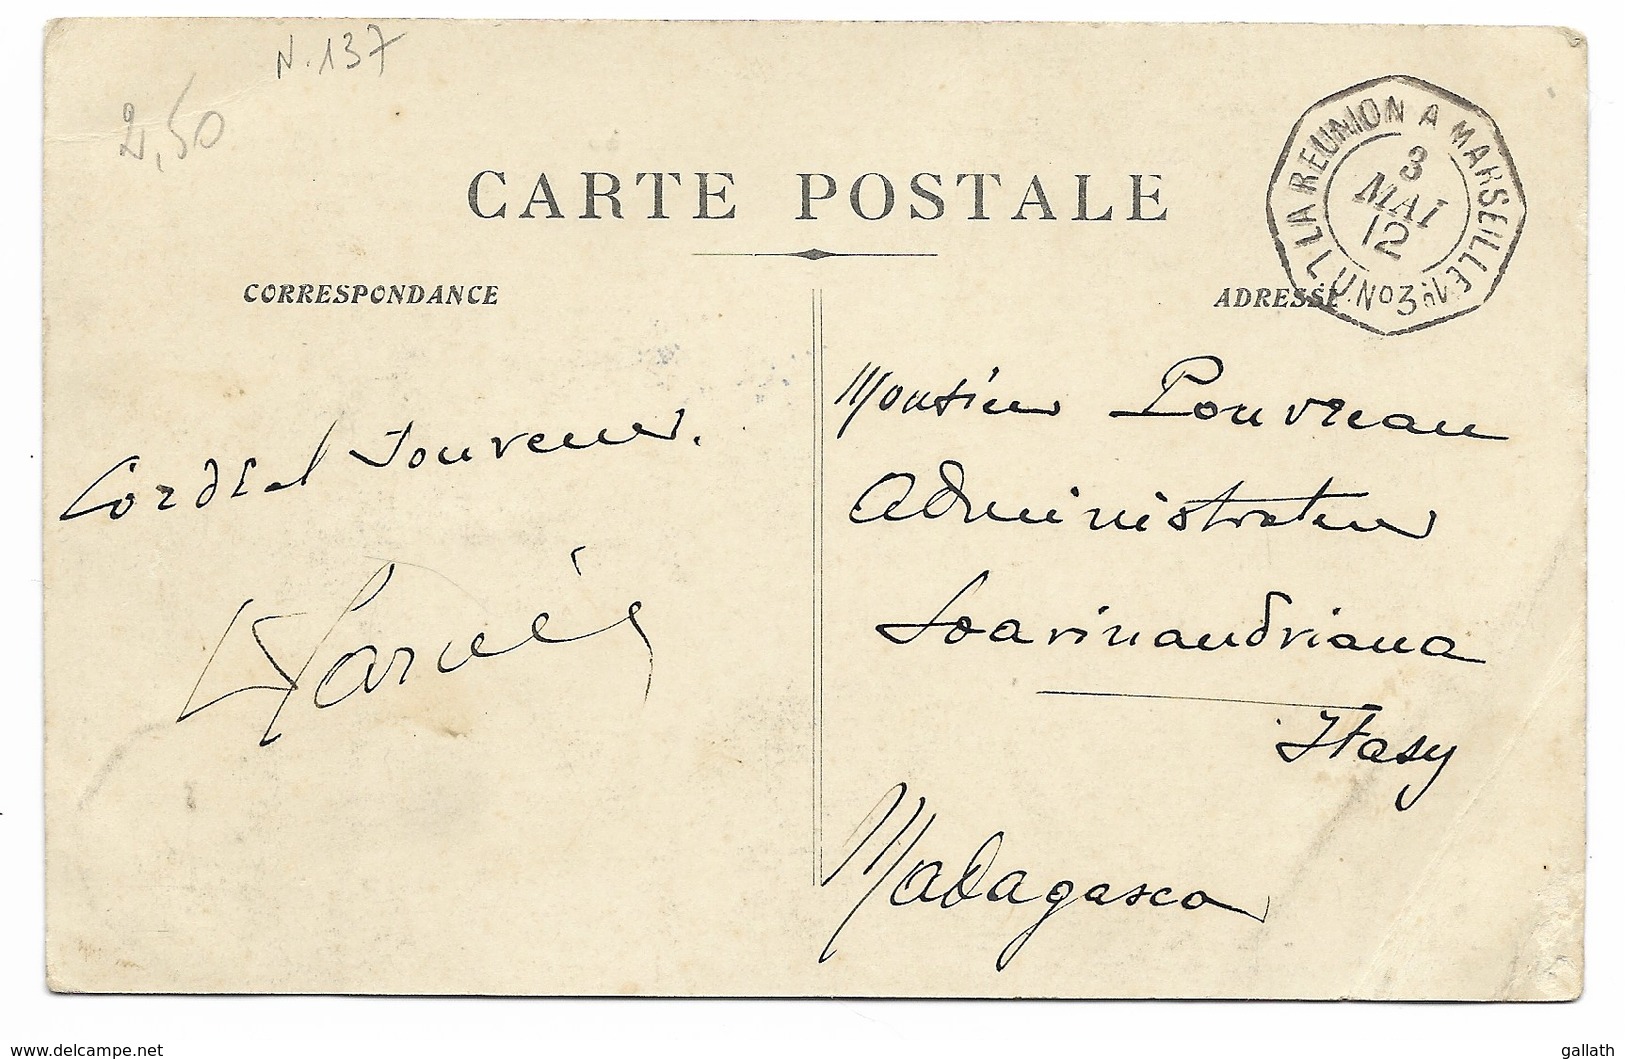 N. 137
2,50
CARTE POSTALE
LA REUNION A MARSEILLE
L.U.No3.
3
MAI
12
CORRESPONDANCE
ADRESSE
Cordial souvenir.
Monsieur Pouvreau
Administrateur
Soarinandriana
Itasy
Madagascar
www.delcampe.net
gallath